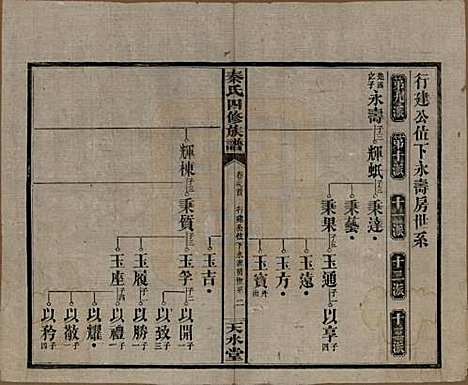 行建公位下永壽房世系
第九派
第十派
十一派
十二派
十三派
永壽
輝蚳
秉達
秉藝
秉果
玉通
玉遠
玉方
玉賓
以享
秦氏四修族譜
卷之首
行建公位下永壽房世系
天水堂
輝棟
秉質
玉吉
玉孚
玉履
玉座
以開
以致
以勝
以禮
以耀
以敬
以矜